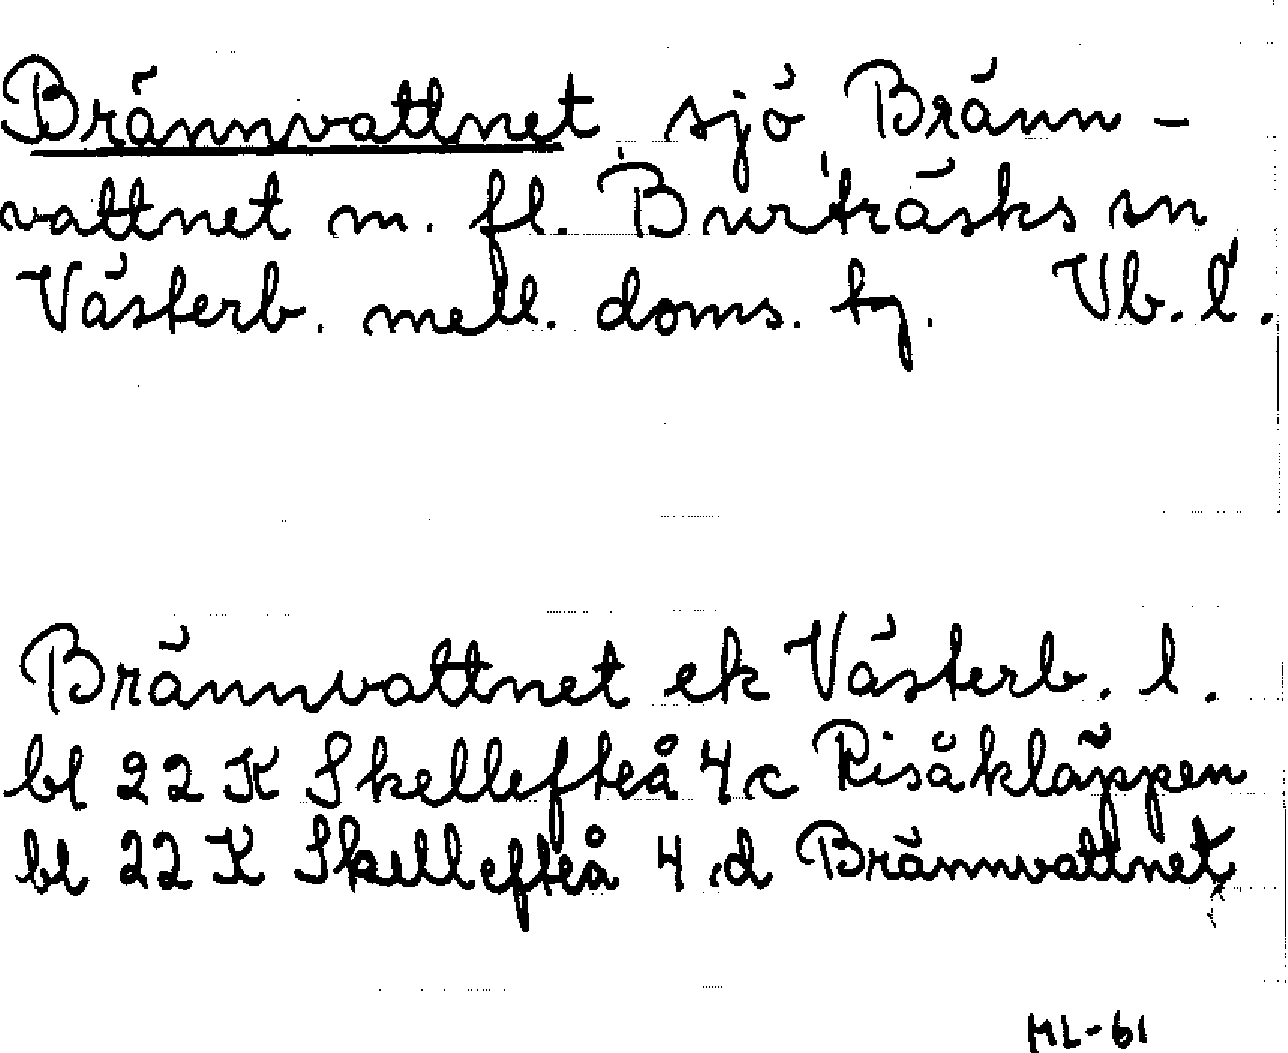 Brännvattnet, sjö, Bränn-
vattnet m. fl. Burträsks sn
Västerb. mell. doms. tg. Vb. l.
Brännvattnet ek Västerb. l.
bl 22 K Skellefteå 4 c Risåkläppen
bl 22 K Skellefteå 4 d Brännvattnet
ML-61